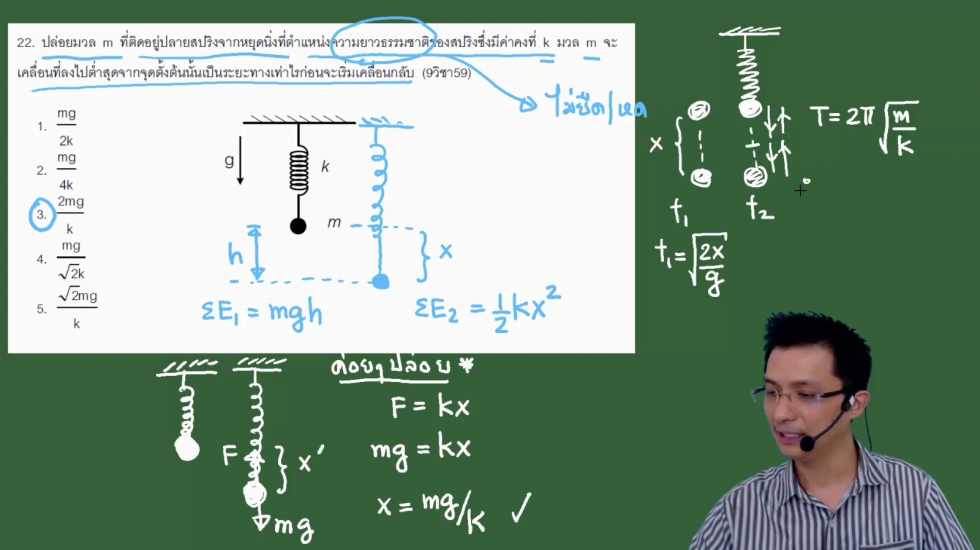 22. ปล่อยมวล m ที่ติดอยู่ปลายสปริงจากหยุดนิ่งที่ตำแหน่งความยาวธรรมชาติของสปริงซึ่งมีค่าคงที่ k มวล m จะ
เคลื่อนที่ลงไปต่ำสุดจากจุดตั้งต้นนั้นเป็นระยะทางเท่าไรก่อนจะเริ่มเคลื่อนกลับ (9วิชา59)
ไม่ยืด/หด
1. mg/2k
2. mg/4k
3. 2mg/k
4. mg/√2k
5. √2mg/k
g
k
m
h
x
ΣE₁ = mgh
ΣE₂ = ½kx²
x
T = 2π√(m/k)
t₁
t₂
t₁ = √(2x/g)
ค่อยๆปล่อย *
F
x'
mg
F = kx
mg = kx
x = mg/k ✓